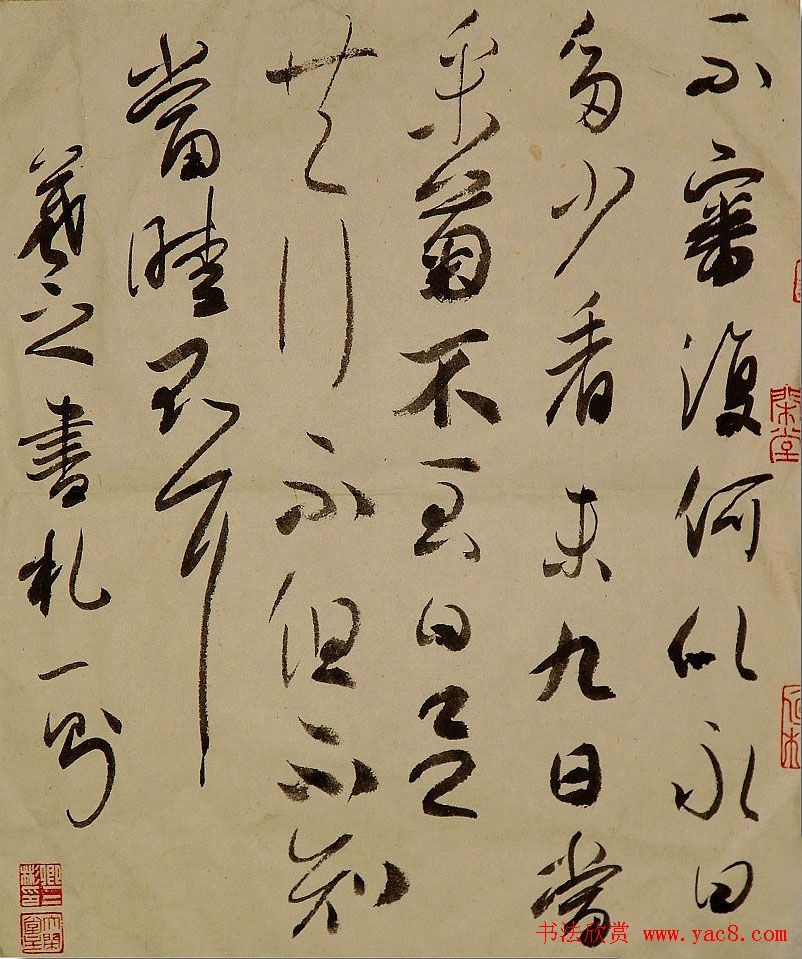 不審復何似永日
多少看未九日當
采菊不至日
共行不但不知
當晴不耳
羲之書札一則
书法欣赏 www.yac8.com